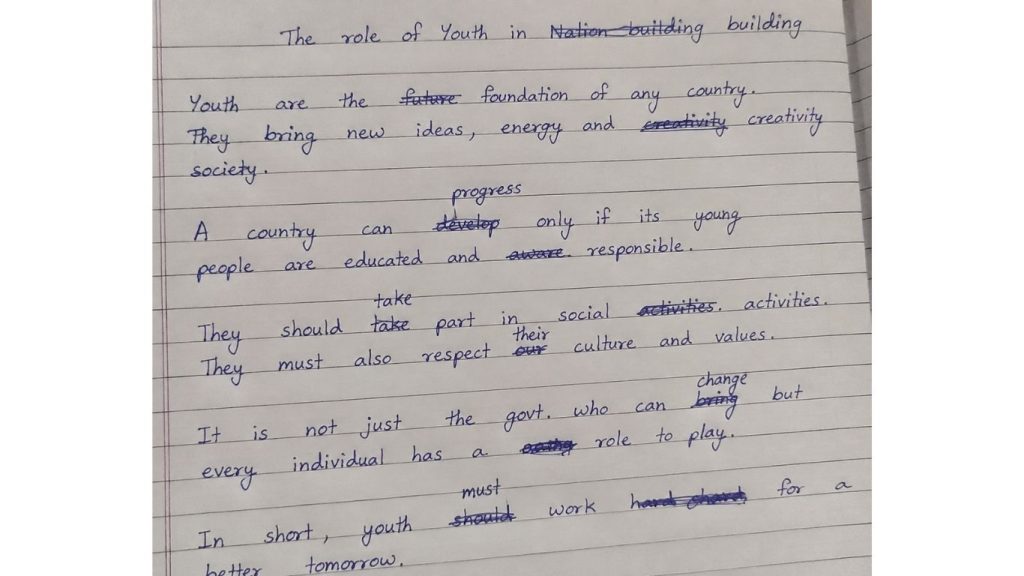 The role of Youth in ~~Nation building~~ building
Youth are the ~~future~~ foundation of any country.
They bring new ideas, energy and ~~creativity~~ creativity
society.
progress
A country can ~~develop~~ only if its young
people are educated and ~~aware.~~ responsible.
take
They should ~~take~~ part in social ~~activities.~~ activities.
their
They must also respect ~~our~~ culture and values.
change
It is not just the govt. who can ~~bring~~ but
every individual has a role to play.
must
In short, youth ~~should~~ work ~~hard~~ for a
better tomorrow.